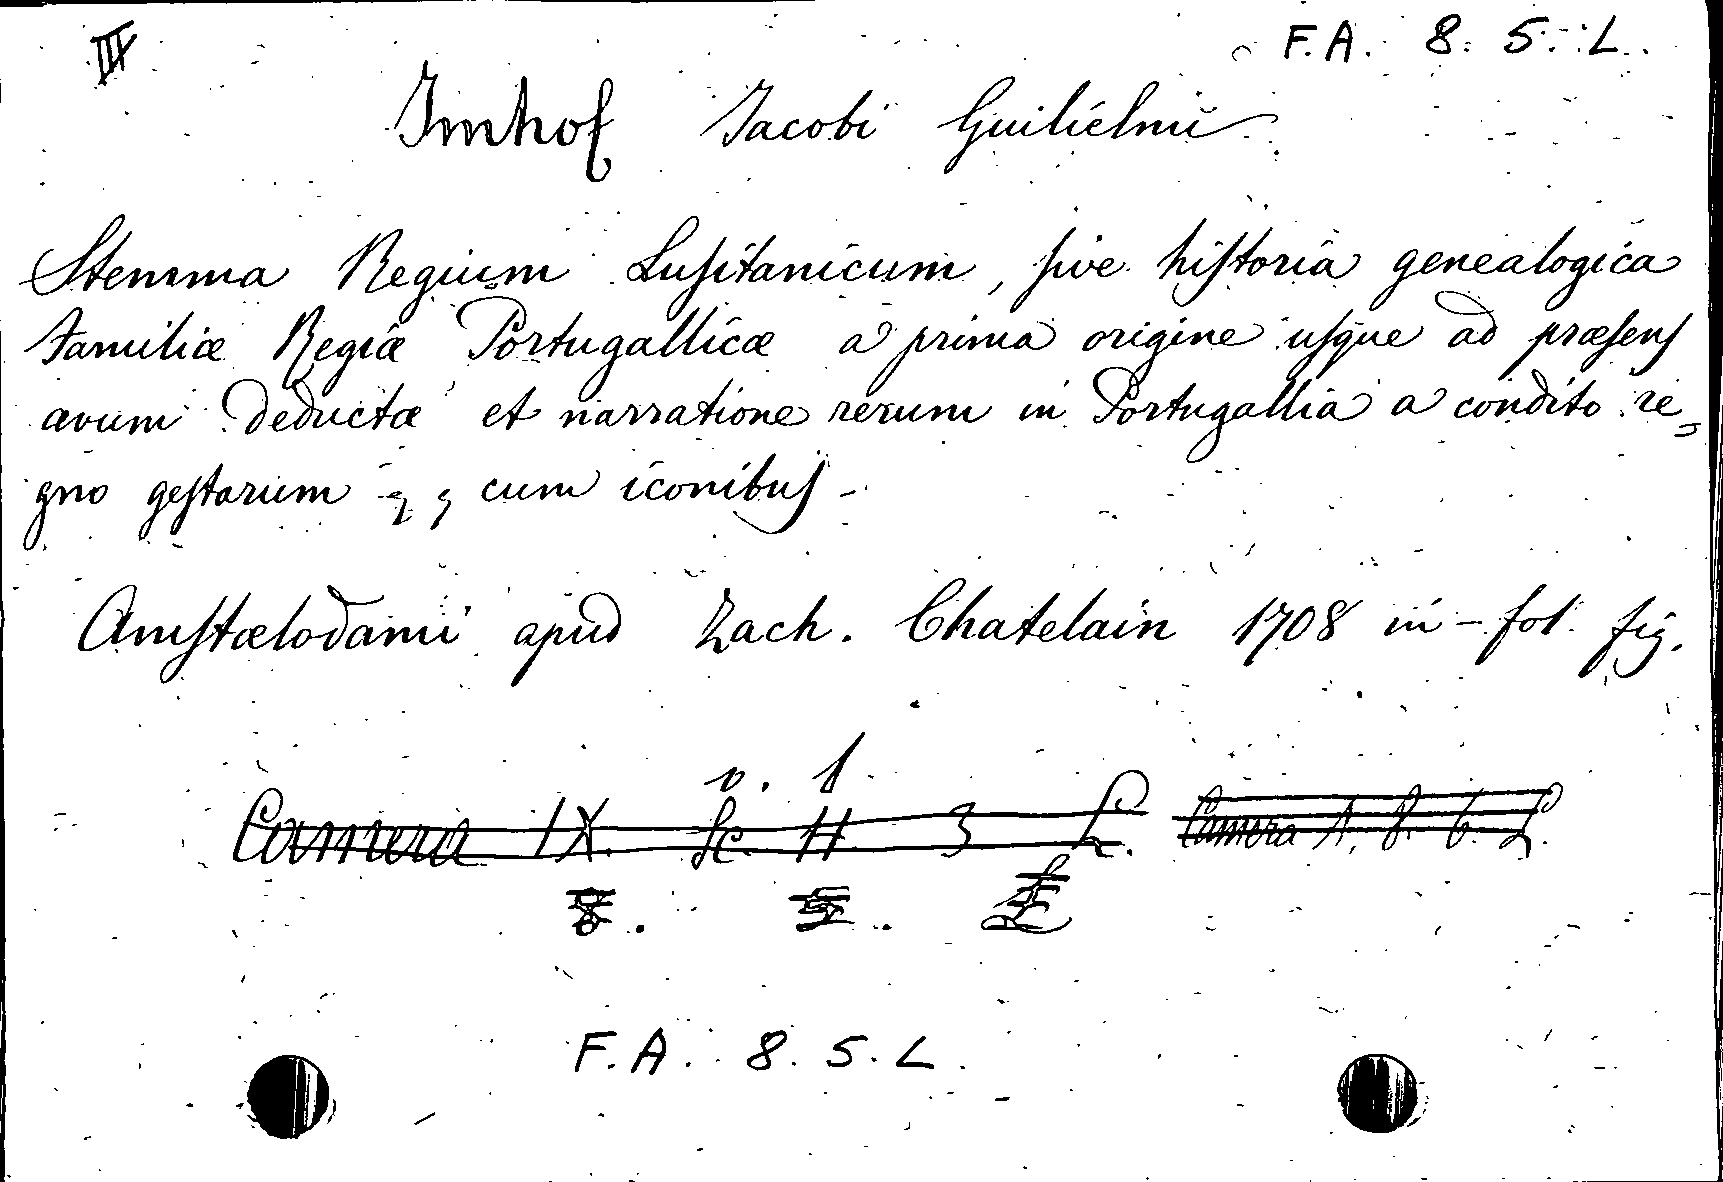 III
F. A. 8. 5. L.
Imhof Jacobi Guilielmi
Stemma Regium Luſitanicum, ſive hiſtoria genealogica
Familiæ Regiæ Portugallicæ a prima origine uſque ad præſens
avum deductæ et narratione rerum in Portugallia a condito re=
gno geſtarum cum iconibus -
Amſtælodami apud Zach. Chatelain 1708 in - fol. fig.
v. 1
Camera IX. Sc. 11 3 L. Camera 1. 8. 6. L.
8. 5. L
F. A. 8. 5. L.